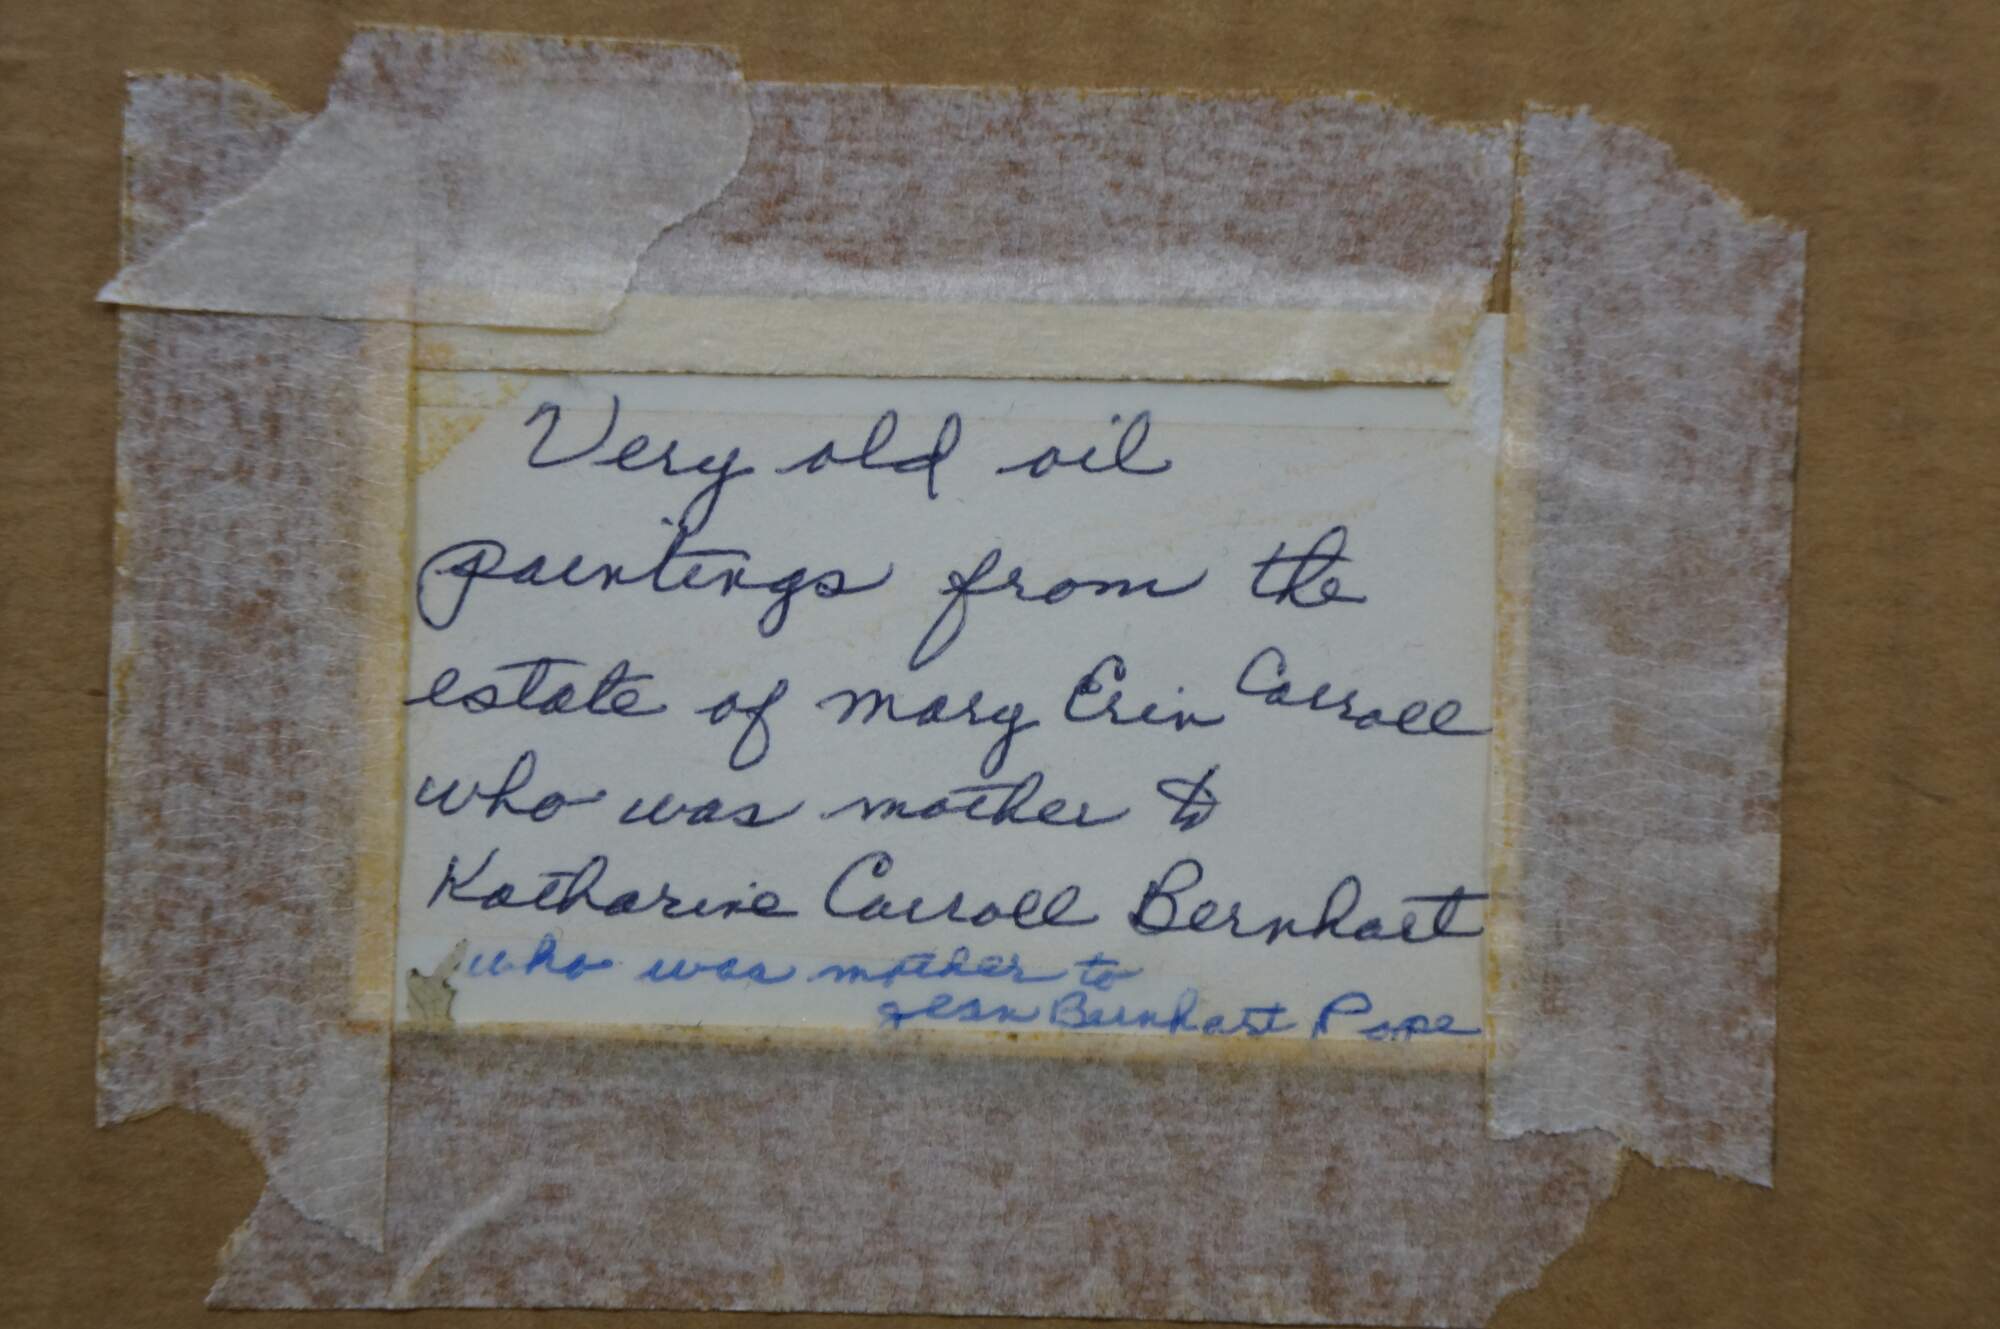 Very old oil
paintings from the
estate of Mary Erin Carroll
who was mother to
Katharine Carroll Bernhart
who was mother to
Jean Bernhart Pope